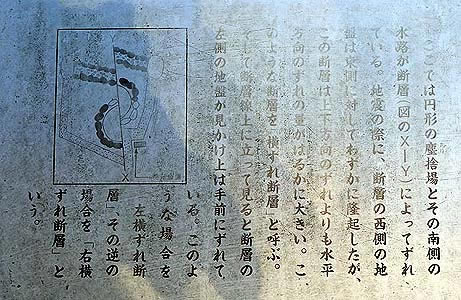 ここでは円形の塵捨場とその南側の
水路が断層(図のX—Y)によってずれ
ている。地震の際に、断層の西側の地
盤は東側に対してわずかに隆起したが、
この断層は上下方向のずれよりも水平
方向のずれの量がはるかに大きい。こ
のような断層を「横ずれ断層」と呼ぶ。
そして断層線上に立って見ると断層の
左側の地盤が見かけ上は手前にずれて
いる。このよ
うな場合を
「左横ずれ断
層」、その逆の
場合を「右横
ずれ断層」と
いう。
X